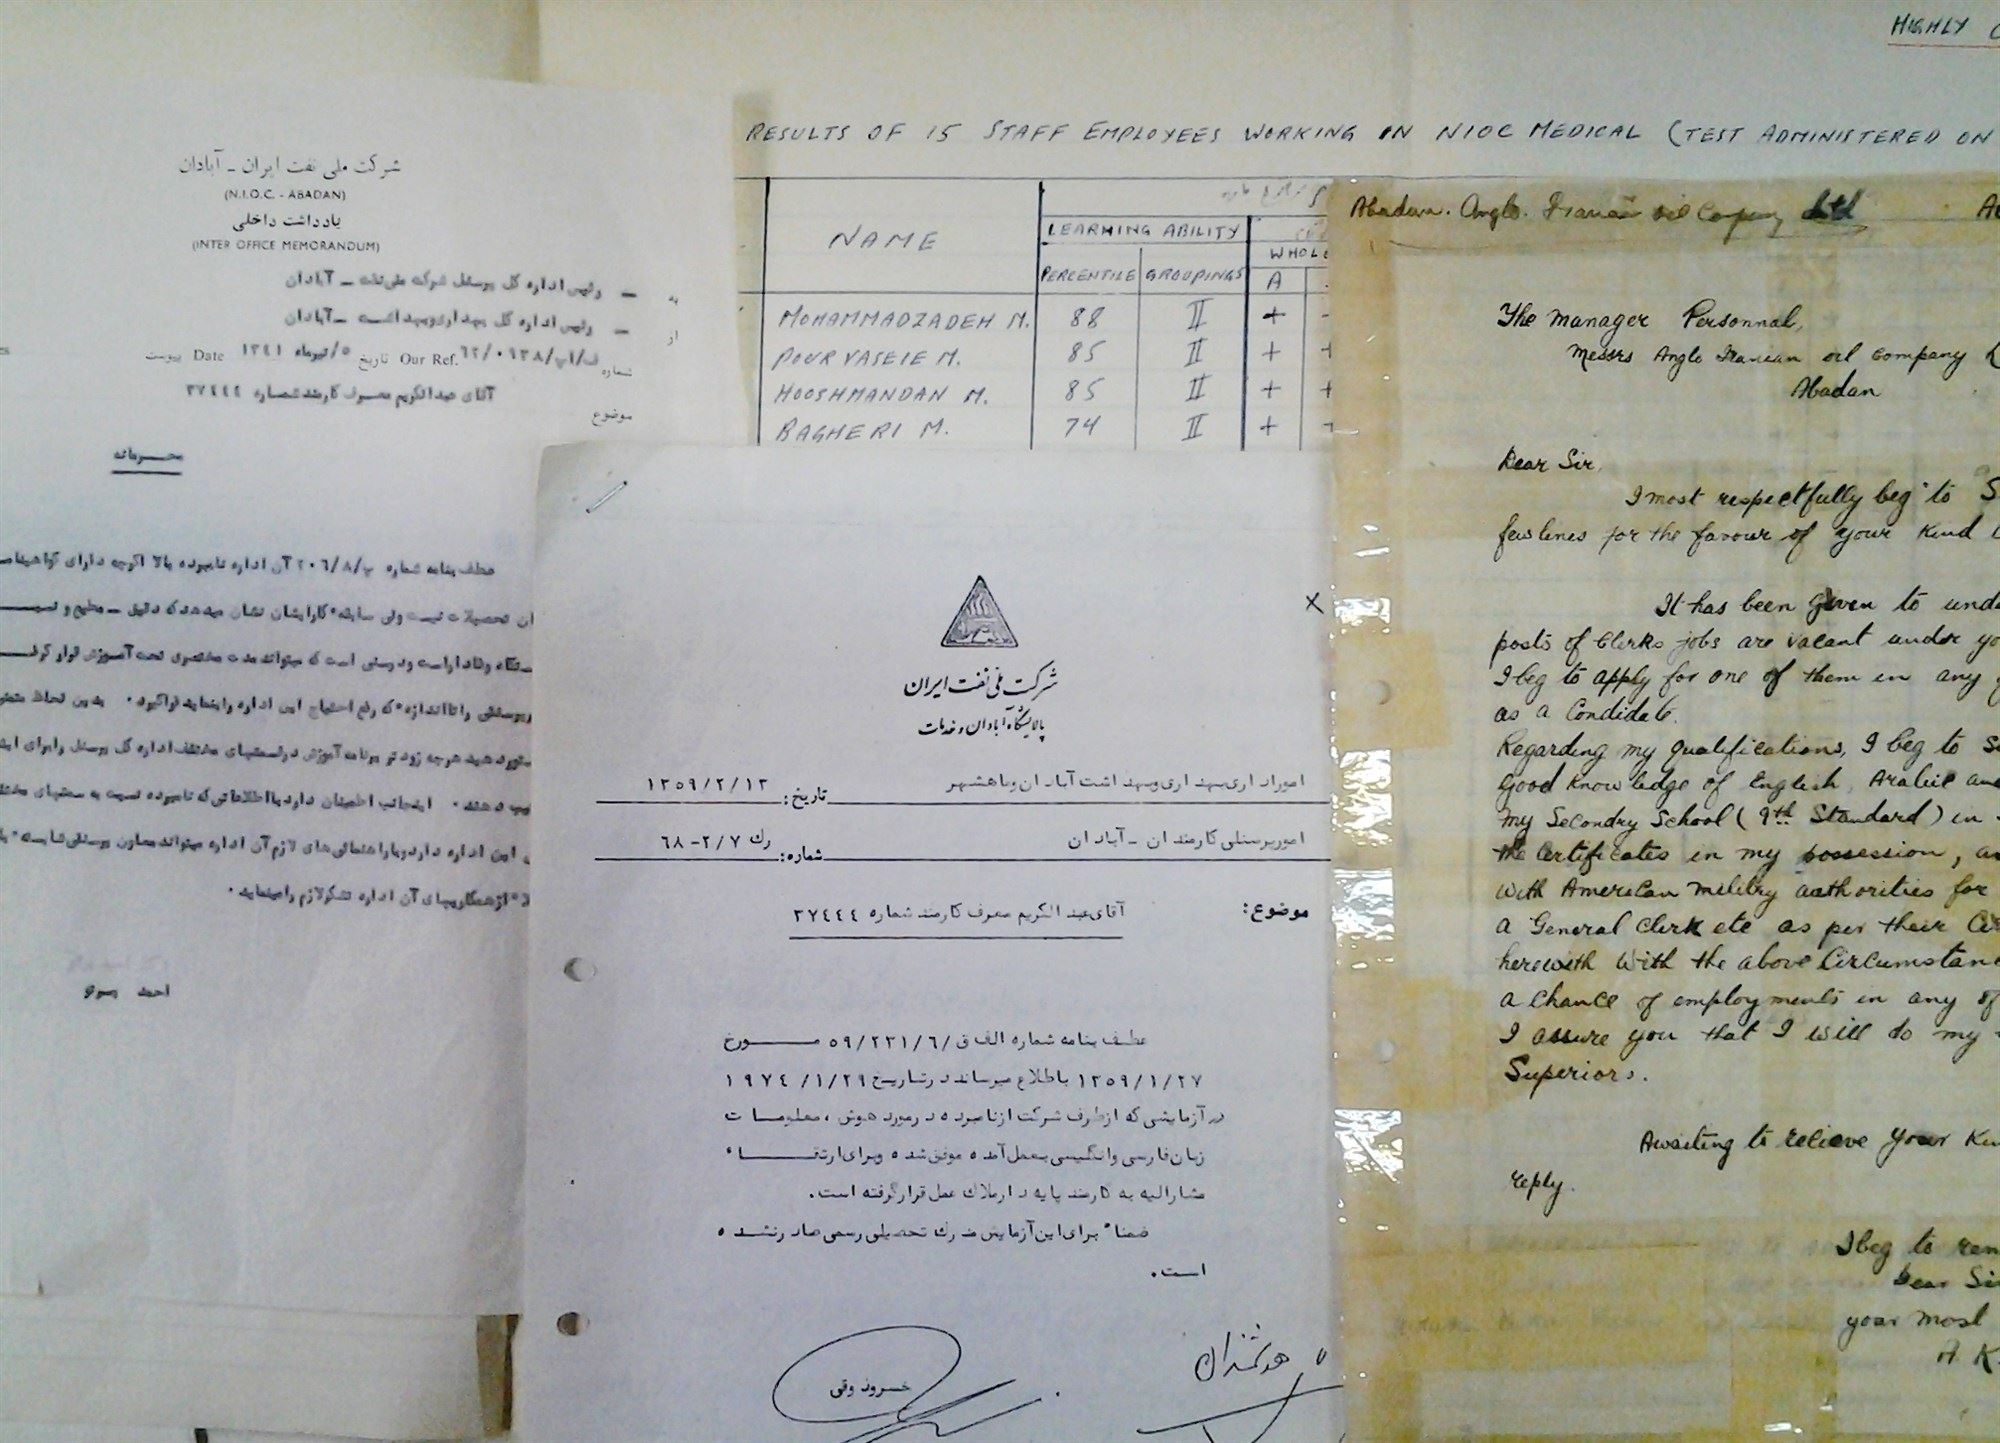 شرکت ملی نفت ایران ـ آبادان
(N.I.O.C. - ABADAN)
یادداشت داخلی
(INTER OFFICE MEMORANDUM)
به
ـ رئیس اداره کل پرسنل شرکت ملی نفت ـ آبادان
از
ـ رئیس اداره کل بهداری و بهداشت ـ آبادان
شماره Our Ref. تاریخ ٥/تیرماه ١٣٤١ Date پیوست
موضوع
آقای عبدالکریم معرف کارمند شماره ٣٧٤٤٤
محرمانه
عطف بنامه شماره پ/٢٠٦/٨ آن اداره نامبرده بالا اگرچه دارای
تحصیلات نیست ولی سابقه کارایشان نشان میدهد که دقیق ـ مطیع و
است که میتواند مدت مختصری تحت آموزش قرار
را تا اندازه که رفع احتیاج این اداره را بنماید فراگیرد . بدین لحاظ
هرچه زودتر برنامه آموزش در قسمتهای مختلف اداره کل پرسنل را برای
دهند . اینجانب اطمینان دارد با اطلاعاتی که نامبرده نسبت به
این اداره دارد و با راهنمائی های لازم آن اداره میتواند معاون پرسنلی
از همکاریهای آن اداره تشکر لازم را مینماید .
احمد
HIGHLY
RESULTS OF 15 STAFF EMPLOYEES WORKING IN NIOC MEDICAL (TEST ADMINISTERED ON
NAME
LEARNING ABILITY
PERCENTILE GROUPINGS
WHOLE
A
MOHAMMADZADEH M. 88 II +
POURVASEIE M. 85 II +
HOOSHMANDAN M. 85 II + +
BAGHERI M. 74 II +
شرکت ملی نفت ایران
پالایشگاه آبادان و خدمات
امور اداری بهداری و بهداشت آبادان و ماهشهر تاریخ: ١٣٥٩/٢/١٣
امور پرسنلی کارمندان ـ آبادان شماره: رك ٢/٧-٦٨
موضوع: آقای عبدالکریم معرف کارمند شماره ٣٧٤٤٤
عطف بنامه شماره الف ق /٥٩/٢٣١/٦ مورخ
١٣٥٩/١/٢٧ باطلاع میرساند در تاریخ ١٩٧٤/١/٢٩
در آزمایشی که از طرف شرکت از نامبرده در مورد هوش ، معلومات
زبان فارسی و انگلیسی بعمل آمده موفق شده و برای ارتقاء
مشارالیه به کارمند پایه دار ملاك عمل قرار گرفته است .
ضمنا" برای این آزمایش مدرك تحصیلی رسمی صادر نشده
است .
هوشمندان
Abadan. Anglo. Iranian oil Company Ltd
The Manager Personnal,
Messrs Anglo Iranian oil Company
Abadan
Dear Sir,
I most respectfully beg to
few lines for the favour of your kind
It has been given to
posts of Clerks jobs are vacant under
I beg to apply for one of them in any
as a Condidate.
Regarding my qualifications, I beg to
Good Knowledge of English, Arabic
my Secondry School (9th Standard) in
the Certificates in my possession,
with American military authorities for
a General Clerk etc as per their
herewith with the above Circumstan
a chance of employments in any of
I assure you that I will do my
Superiors.
Awaiting to recieve your
reply.
I beg to
Dear Sir
your most
A. K.